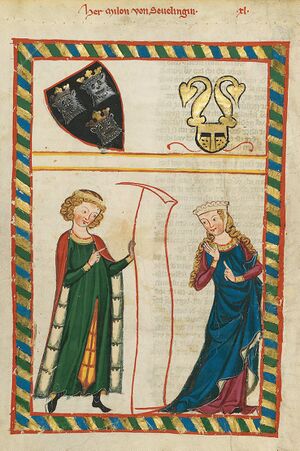 Her milon von Seuelingin. xl.